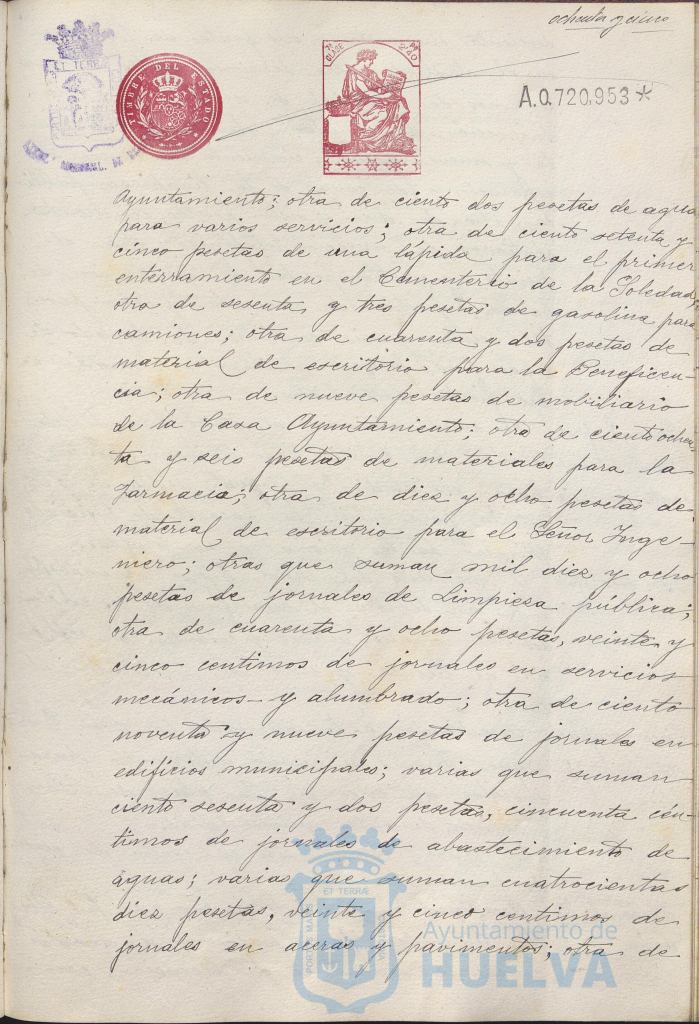 ochenta y cinco
ET TERRÆ
TIMBRE DEL ESTADO
7ª CLASE
A.0.720,953 *
Ayuntamiento; otra de ciento dos pesetas de agua
para varios servicios; otra de ciento setenta y
cinco pesetas de una lápida para el primer
enterramiento en el Cementerio de la Soledad;
otra de sesenta y tres pesetas de gasolina para
camiones; otra de cuarenta y dos pesetas de
material de escritorio para la Beneficen-
cia; otra de nueve pesetas de mobiliario
de la Casa Ayuntamiento; otra de ciento ochen-
ta y seis pesetas de materiales para la
Farmacia; otra de diez y ocho pesetas de
material de escritorio para el Señor Inge-
niero; otras que suman mil diez y ocho
pesetas de jornales de Limpieza pública;
otra de cuarenta y ocho pesetas, veinte y
cinco centimos de jornales en servicios
mecánicos y alumbrado; otra de ciento
noventa y nueve pesetas de jornales en
edificios municipales; varias que suman
ciento sesenta y dos pesetas, cincuenta cén-
timos de jornales de abastecimiento de
aguas; varias que suman cuatrocientas
diez pesetas, veinte y cinco centimos de
jornales en aceras y pavimentos; otra de
ET TERRÆ
Ayuntamiento de
HUELVA